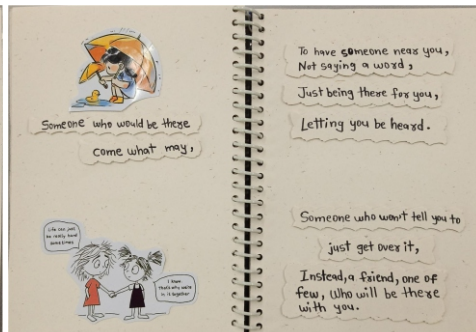 Someone who would be there
come what may,
Life can just
be really hard
sometimes
I know
that's why we're
in it together
To have someone near you,
Not saying a word,
Just being there for you,
Letting you be heard.
Someone who won't tell you to
just get over it,
Instead, a friend, one of
few, who will be there
with you.